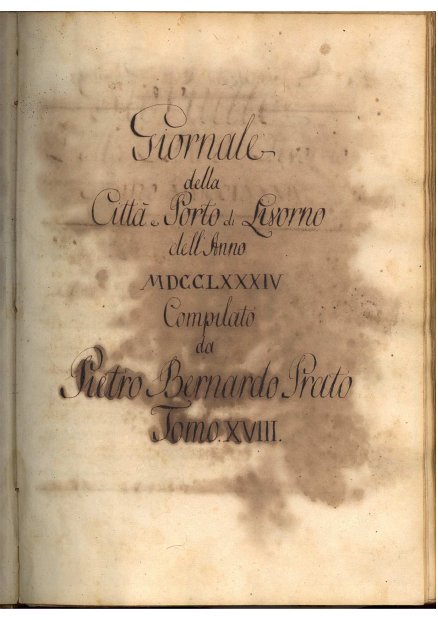 Giornale
della
Città e Porto di Livorno
dell'Anno
MDCCLXXXIV
Compilato
da
Pietro Bernardo Prato
Tomo. XVIII.